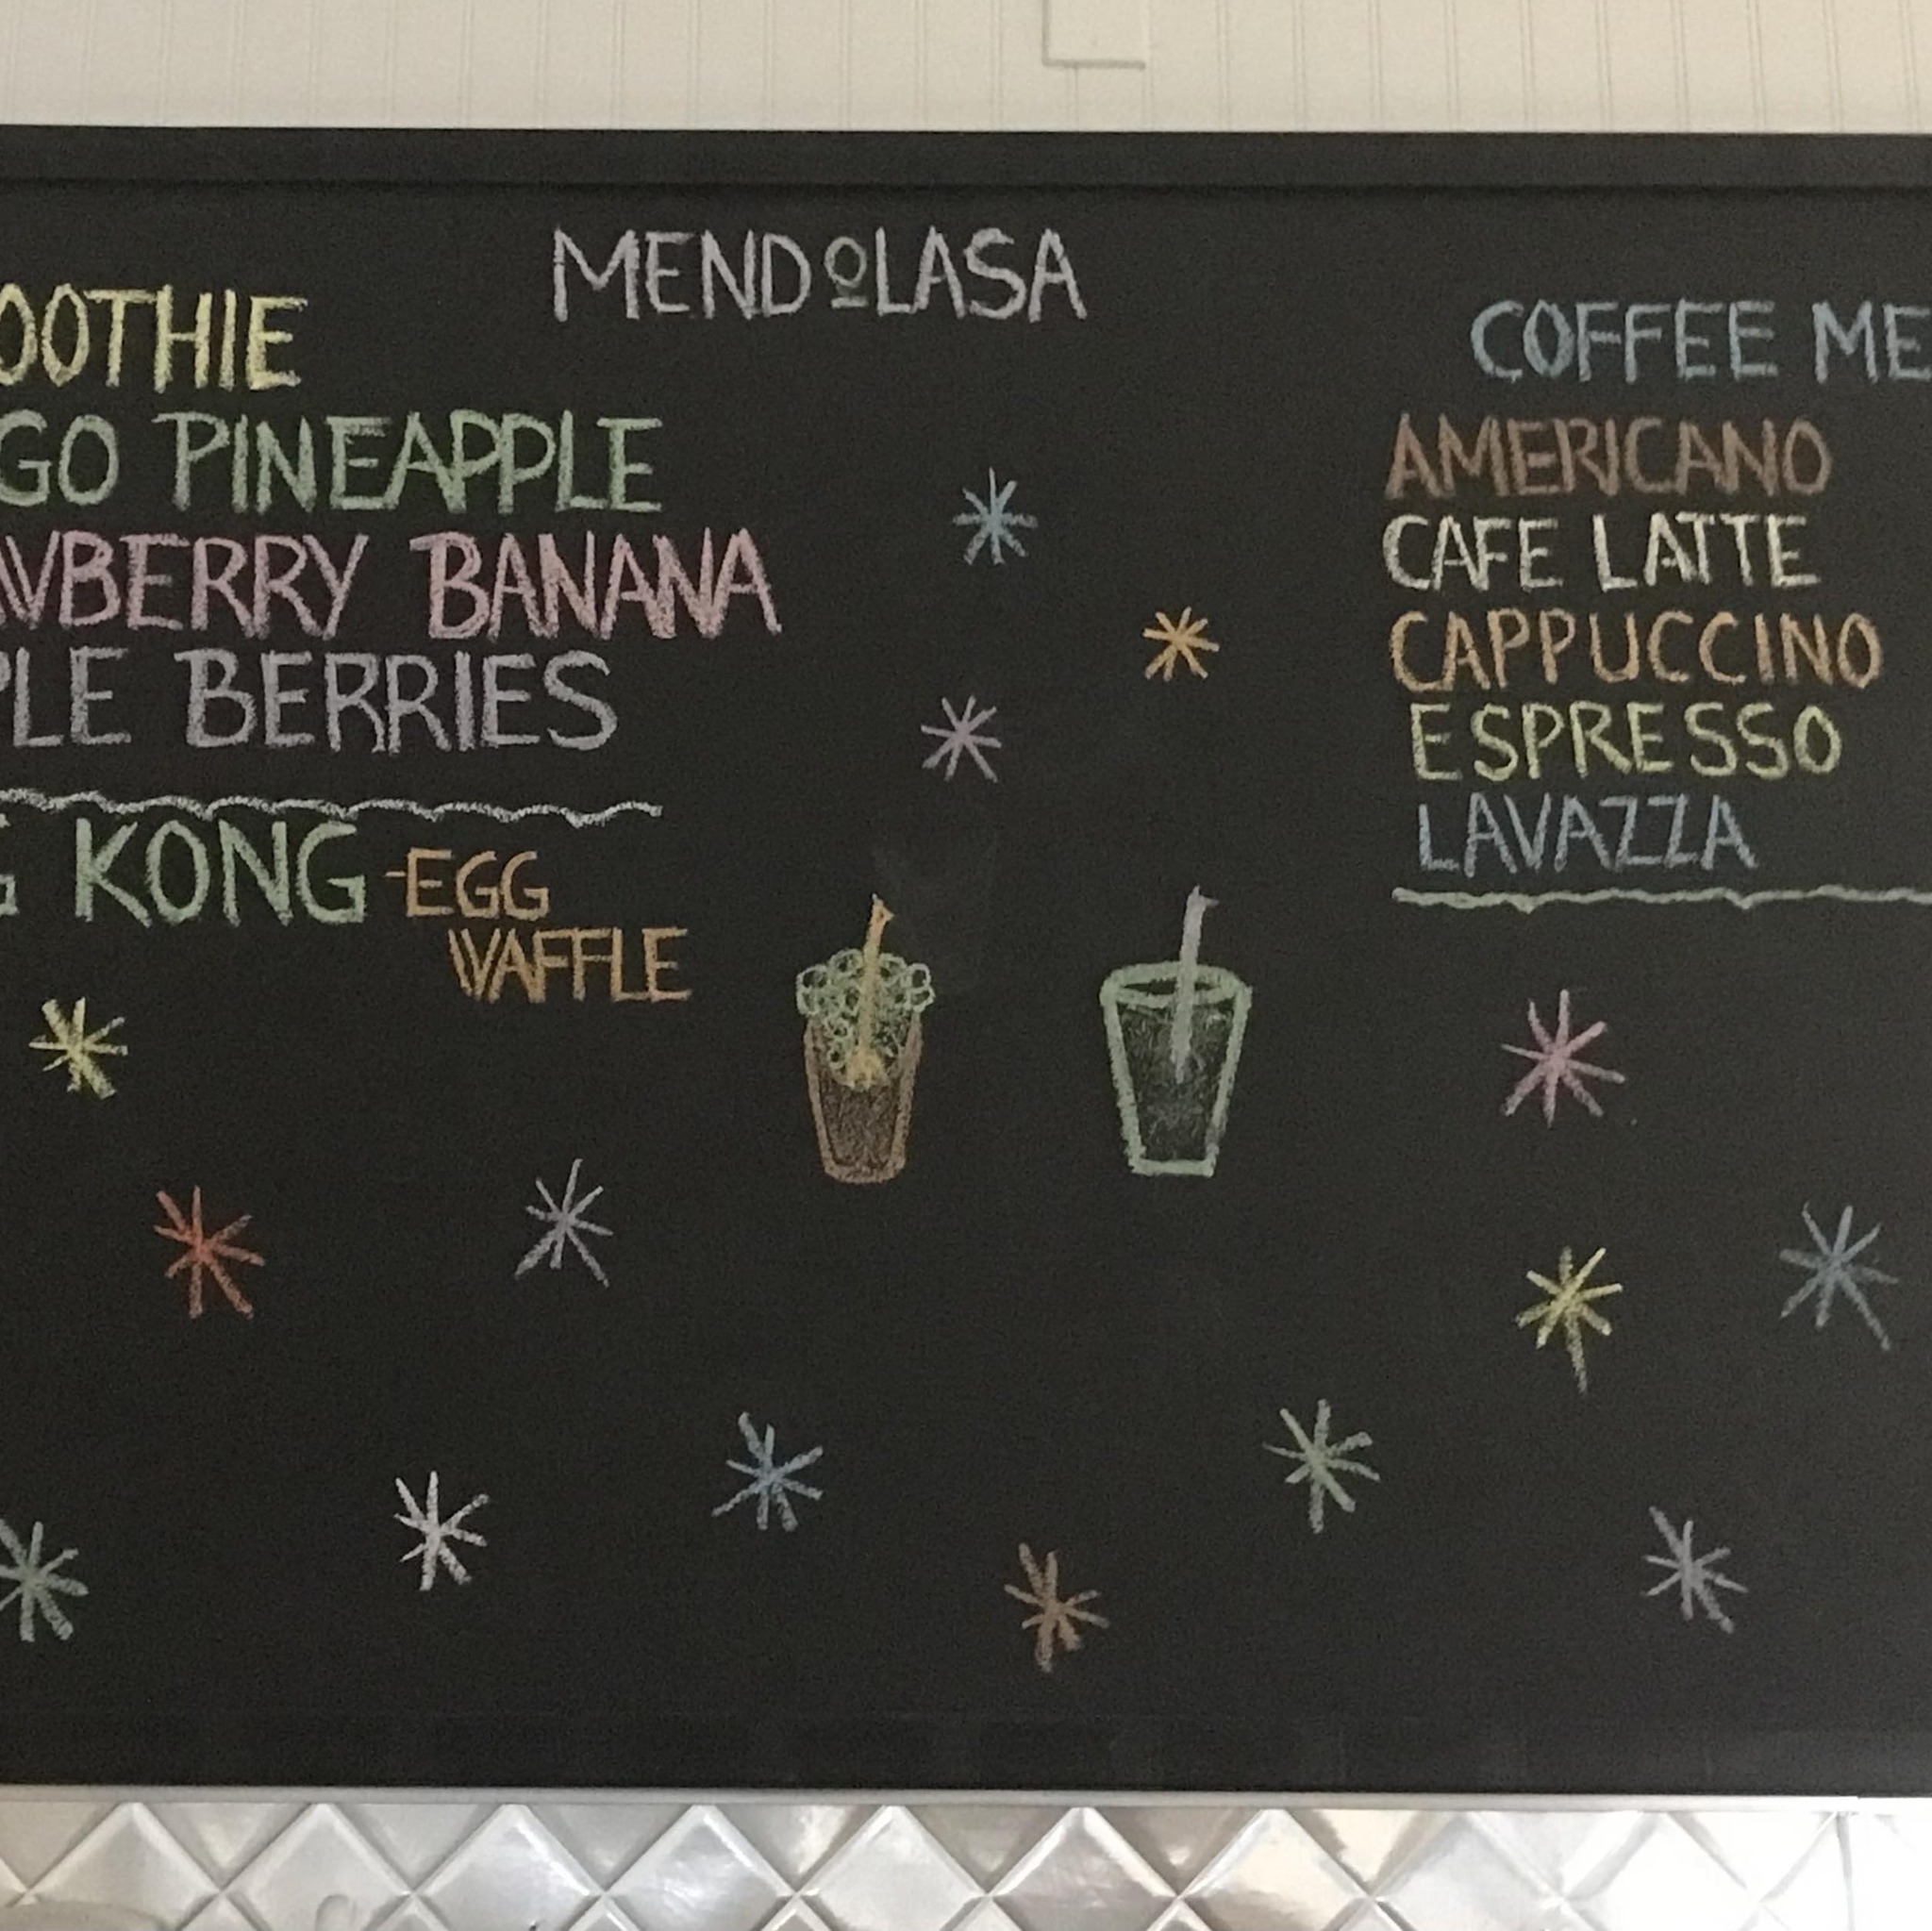 MENDOLASA
OOTHIE
GO PINEAPPLE
AWBERRY BANANA
PLE BERRIES
G KONG -EGG
WAFFLE
COFFEE ME
AMERICANO
CAFE LATTE
CAPPUCCINO
ESPRESSO
LAVAZZA